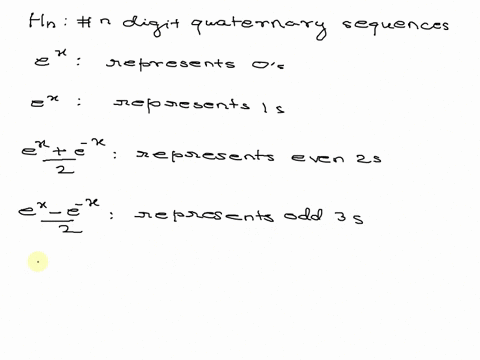 Hn: # n digit quaternary sequences
e^x : represents 0's
e^x : represents 1s
(e^x + e^-x)/2 : represents even 2s
(e^x - e^-x)/2 : represents odd 3s